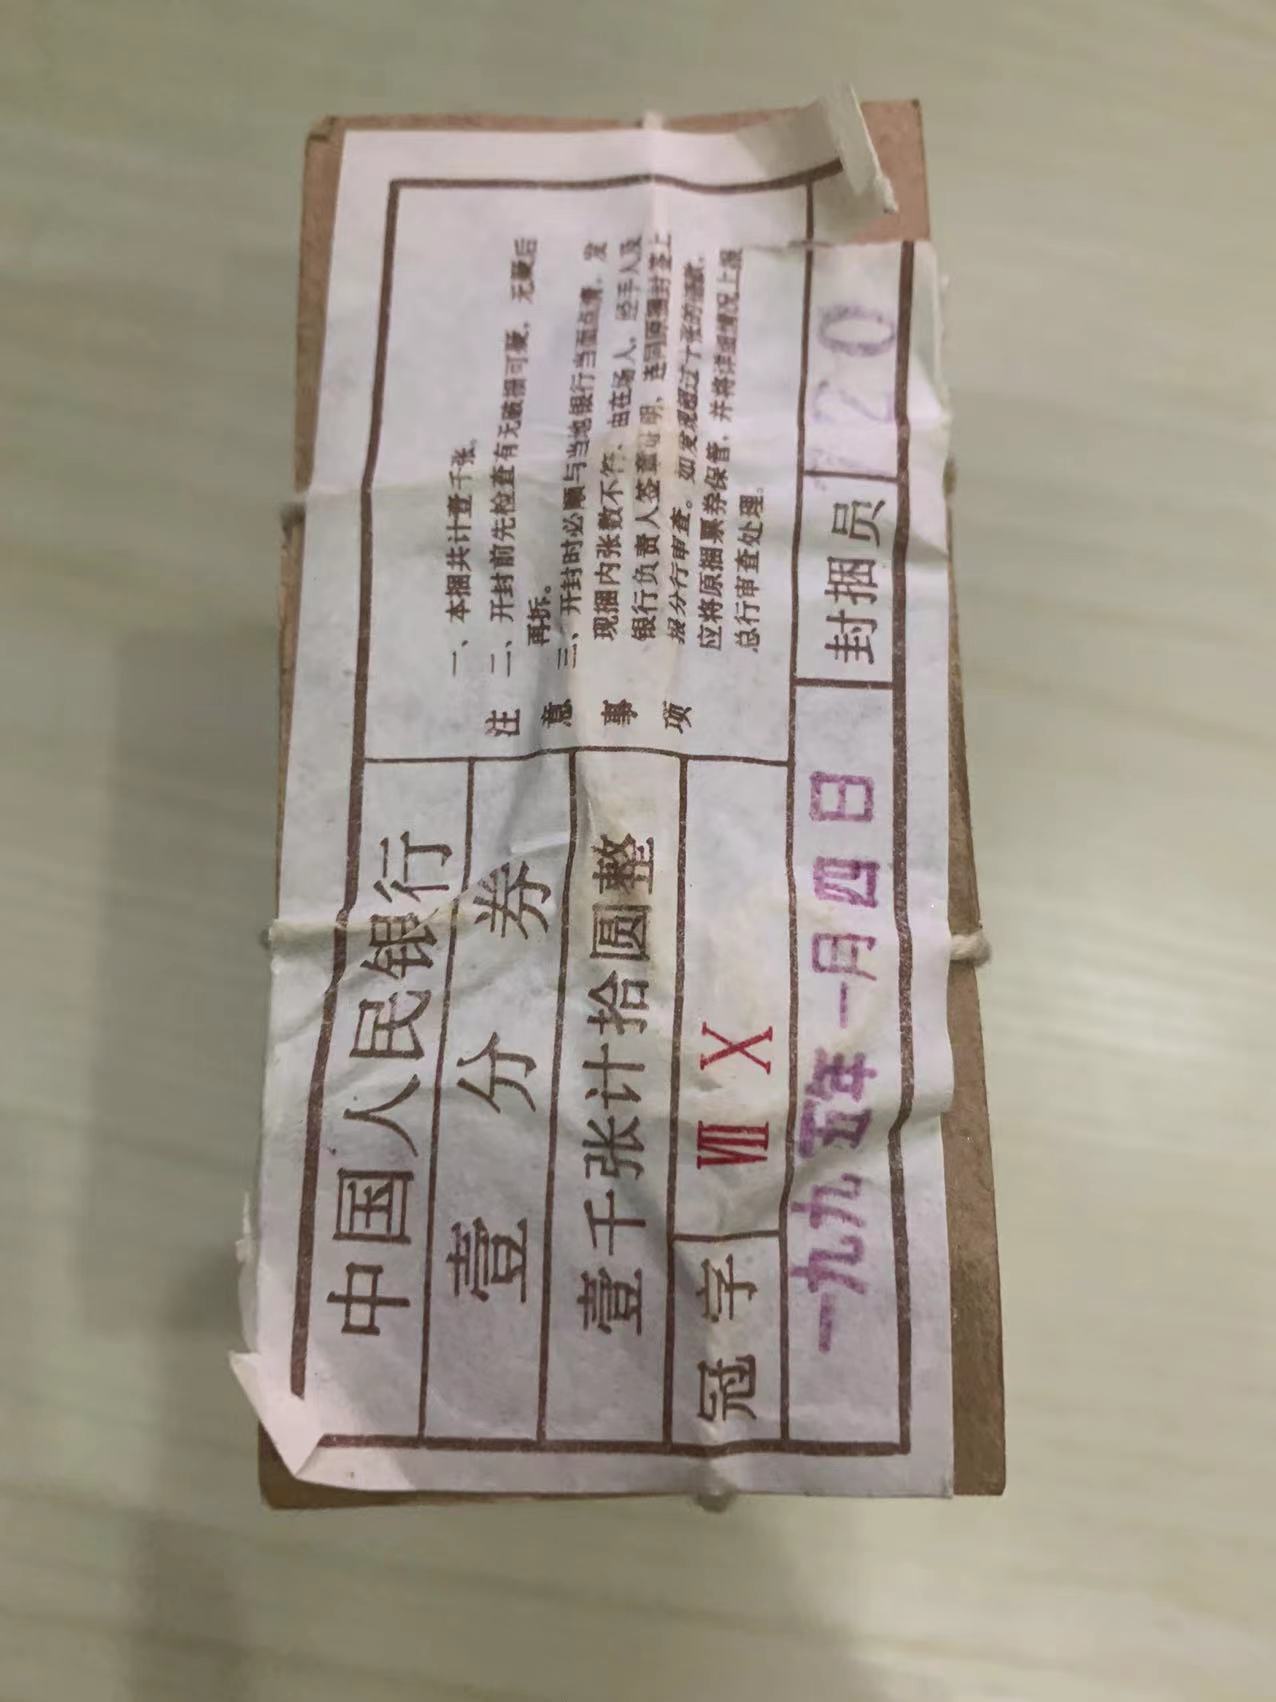 中国人民银行
壹分券
壹千张计拾圆整
冠字 Ⅶ Ⅹ
一九九五年一月四日
注意事项
一、本捆共计壹千张。
二、开封前先检查有无破损可疑，无疑后
再拆。
三、开封时必顺与当地银行当面点清，发
现捆内张数不符、由在场人，经手人及
银行负责人签章证明，连同原捆封签上
报分行审查。如发现超过十张的错款，
应将原捆票券保管，并将详细情况上报
总行审查处理。
封捆员 120